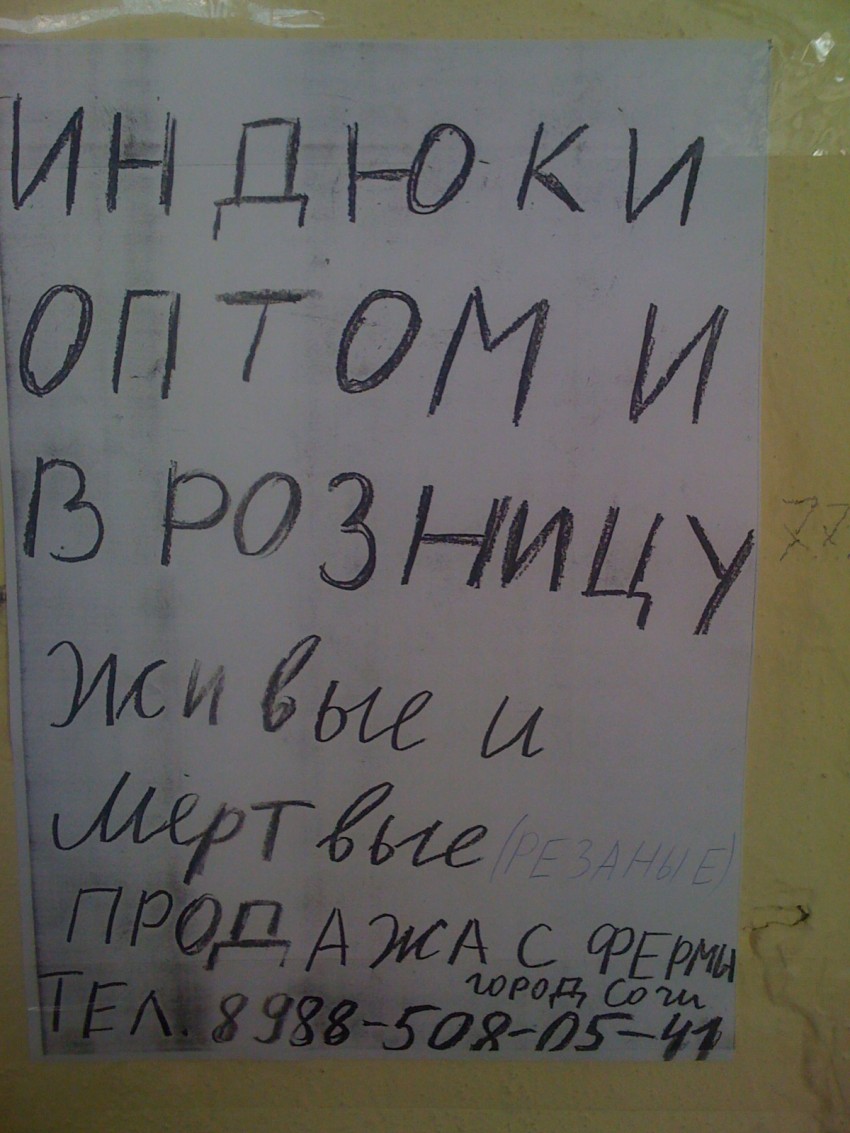 ИНДЮКИ
ОПТОМ И
В РОЗНИЦУ
живые и
мёртвые (РЕЗАНЫЕ)
ПРОДАЖА С ФЕРМЫ
город Сочи
ТЕЛ. 8988-508-05-41
77